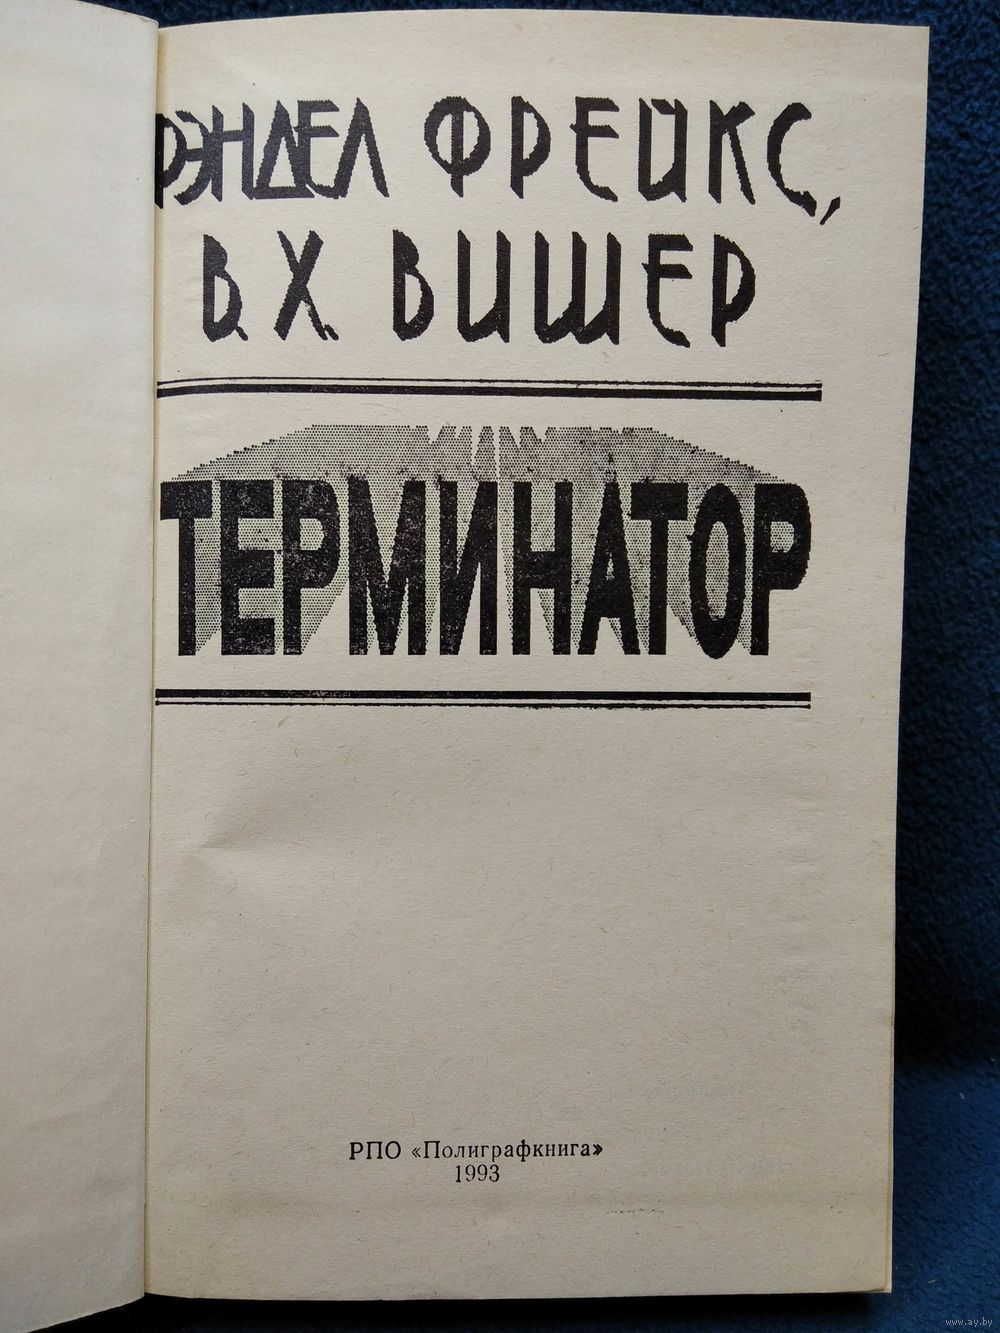 РЭНДЕЛ ФРЕЙКС,
В. Х. ВИШЕР
ТЕРМИНАТОР
РПО «Полиграфкнига»
1993
www.ay.by